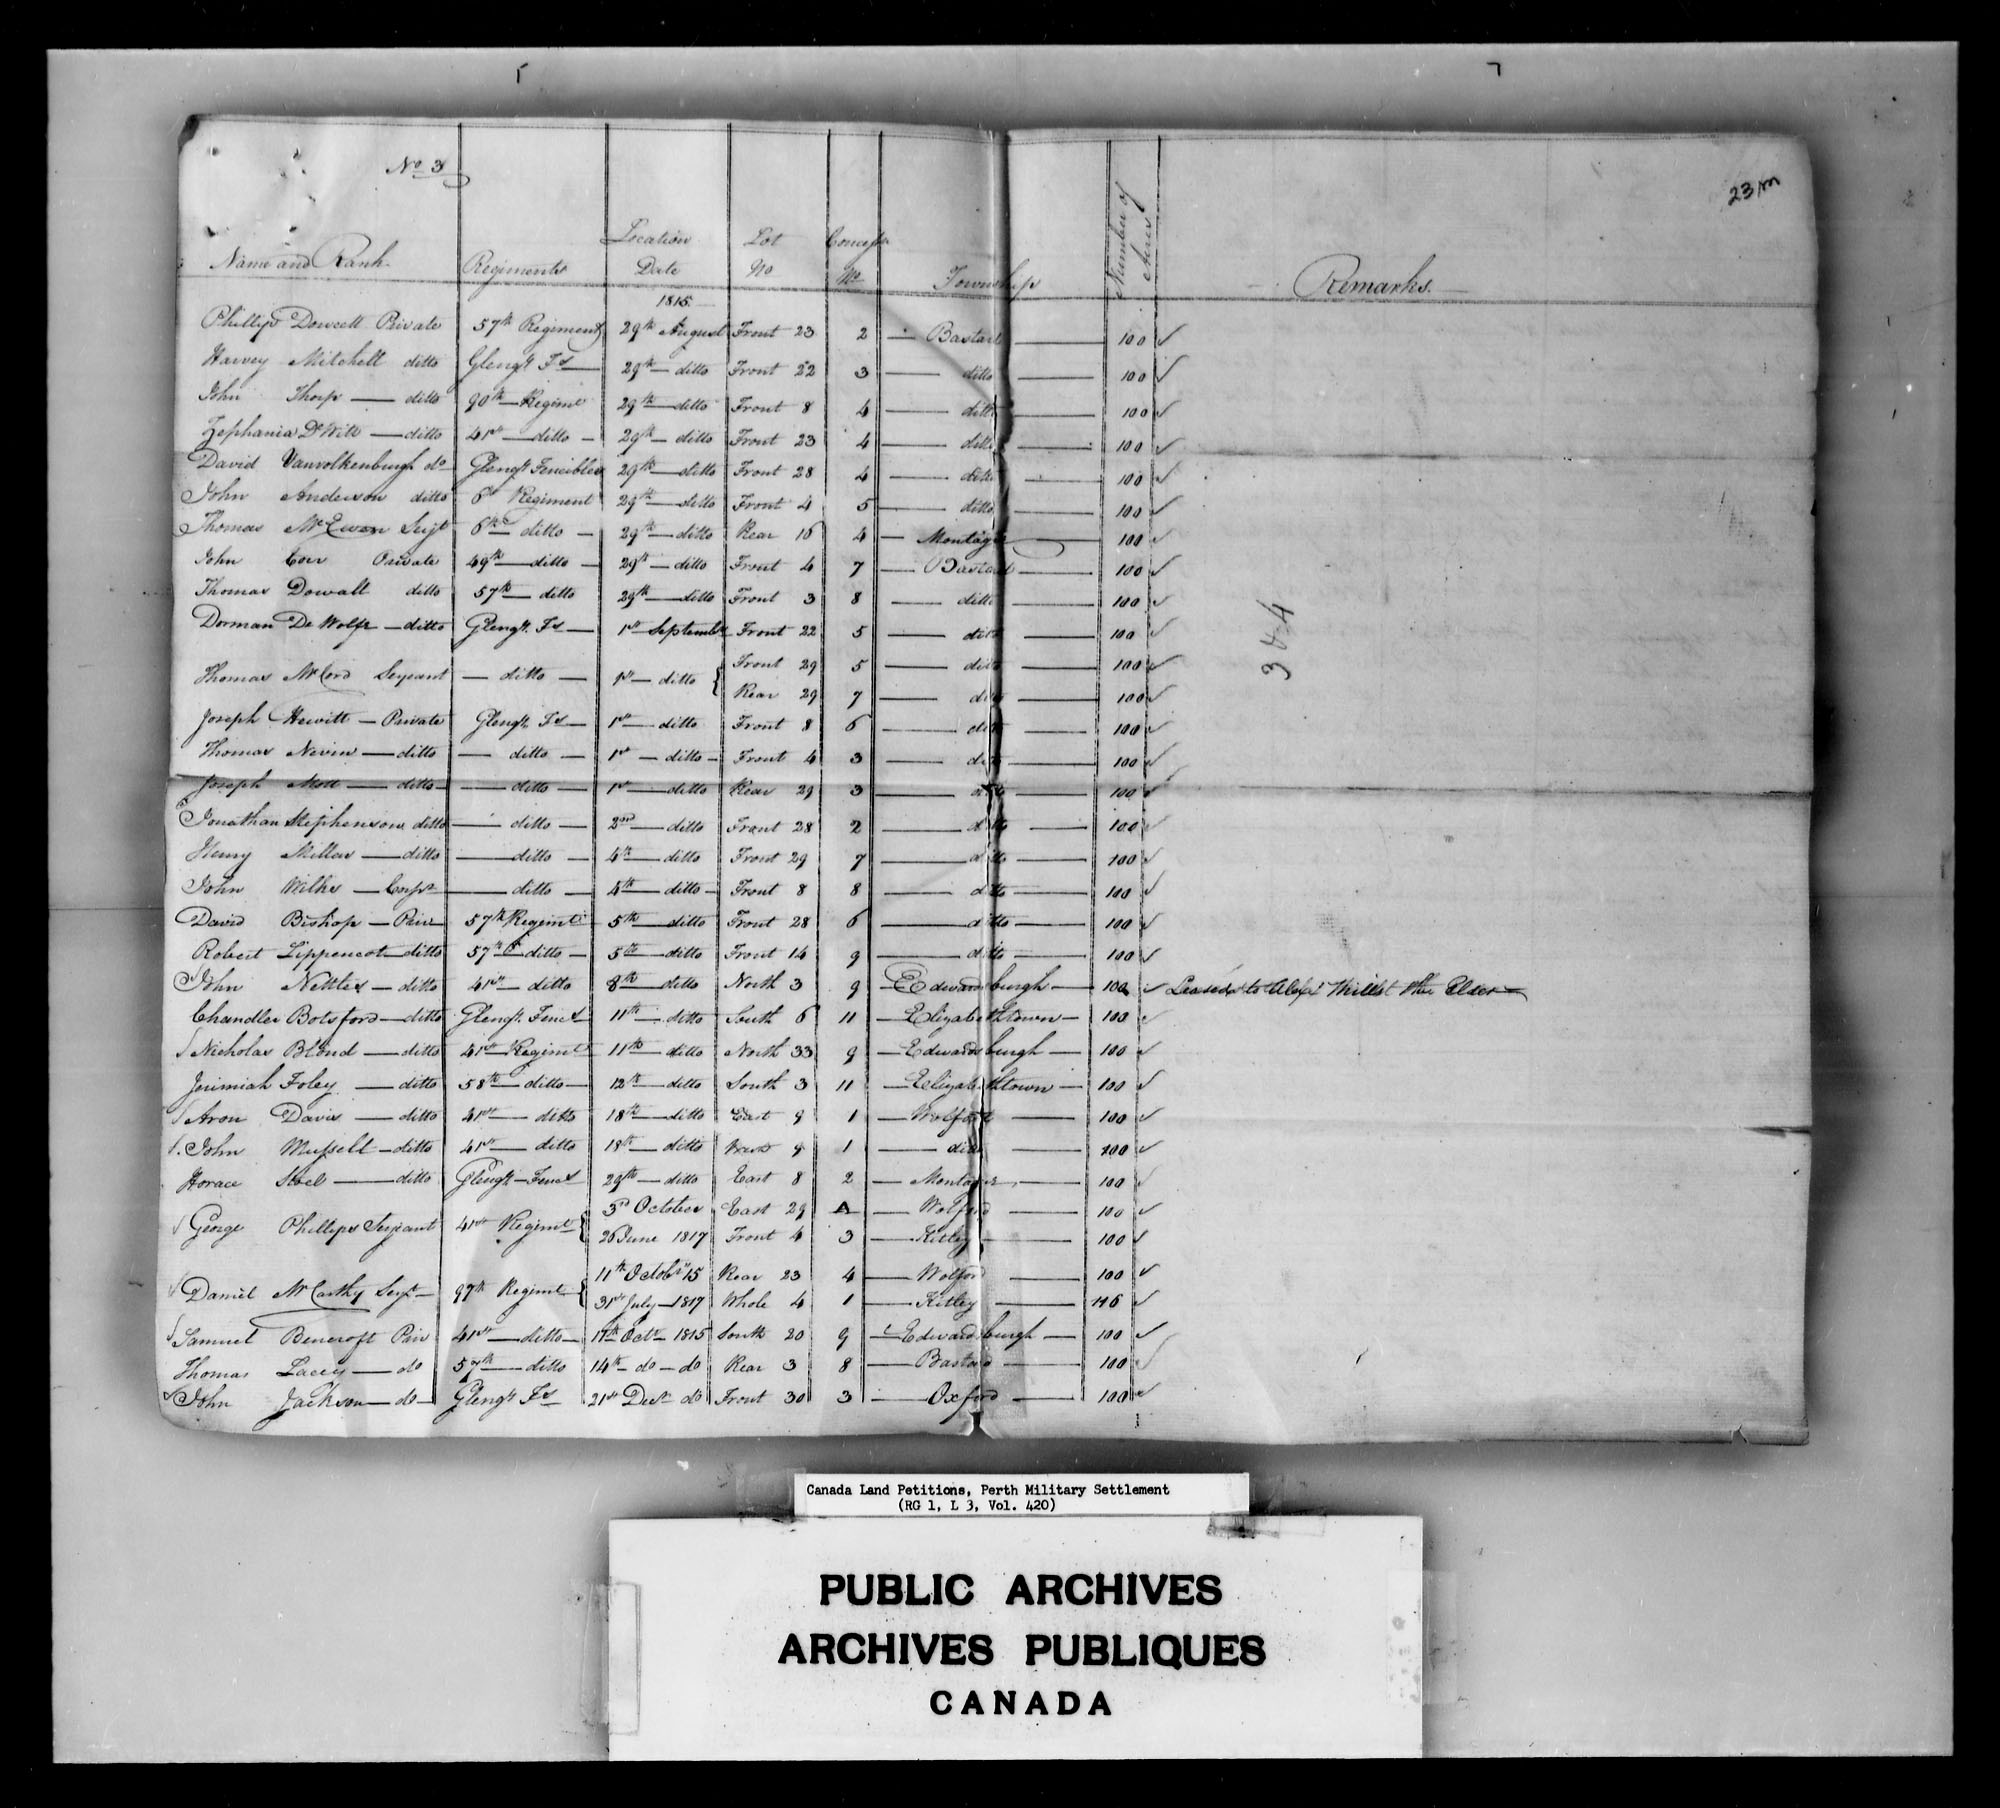 No 3
23 m
Name and Rank Regiments Location Date Lot No Concess. No Township Number of Acres Remarks.
1815
Phillip Dowcett Private 57th Regiment 29th August Front 23 2 — Bastard — 100 ✓
Harvey Mitchell ditto Glengy Fs — 29th — ditto Front 22 3 — ditto — 100 ✓
John Thorp — ditto 90th — Regimt 29th — ditto Front 8 4 — ditto — 100 ✓
Zephania DWitt — ditto 41st — ditto — 29th — ditto Front 23 4 — ditto — 100 ✓
David Vanvolkenburgh do Glengy Fencibles 29th — ditto Front 28 4 — ditto — 100 ✓
John Anderson ditto Regiment 29th — ditto Front 4 5 — ditto — 100 ✓
Thomas McEwen Serjt 6th — ditto — 29th — ditto Rear 16 4 — Montague — 100 ✓
John Private 49th — ditto — 29th — ditto Front 4 7 — Bastard — 100 ✓
Thomas Dowalt ditto 57th — ditto 29th — ditto Front 3 8 — ditto — 100 ✓
Dorman De Wolfe — ditto Glengy. Fs — 1st September Front 22 5 — ditto — 100 ✓
Thomas McCord Serjeant — ditto — 1st — ditto { Front 29 5 — ditto — 100 ✓
Rear 29 7 — ditto 100 ✓
Joseph Hewitt — Private Glengy Fs — 1st — ditto Front 8 6 — ditto — 100 ✓
Thomas Nevin — ditto — ditto — 1st — ditto — Front 4 3 — ditto — 100 ✓
Joseph Mott — ditto — ditto — 1st — ditto Rear 29 3 — ditto — 100 ✓
Jonathan Stephenson ditto — ditto — 2nd — ditto Front 28 2 — ditto — 100 ✓
Henry Millar — ditto — ditto — 4th — ditto Front 29 7 — ditto — 100 ✓
John Wilks — Corpl — ditto — 4th — ditto — Front 8 8 — ditto — 100 ✓
David Bishop — Priv 57th Regimt 5th — ditto Front 28 6 — ditto — 100 ✓
Robert Lippencot — ditto 57th — ditto — 5th — ditto Front 14 9 — ditto — 100 ✓
John Nettles — ditto 41st — ditto 8th — ditto North 3 9 — Edwardsburgh — 100 ✓ Leased to the Elder
Chandler Botsford — ditto Glengy. Fencs 11th — ditto South 6 11 — Elizabethtown — 100 ✓
Nicholas Blond — ditto 41st Regimt 11th — ditto North 33 9 — Edwardsburgh — 100 ✓
Jerimiah Foley — ditto 58th — ditto — 12th — ditto South 3 11 — Elizabethtown — 100 ✓
Aron Davis — ditto 41st — ditto 18th — ditto East 9 1 — Wolford 100 ✓
John Mussell — ditto 41st — ditto 18th — ditto West 9 1 — ditto — 100 ✓
Horace Steel — ditto Glengy — Fencs 29th — ditto East 8 2 — Montague — 100 ✓
George Phillips Serjeant 41st Regimt { 3rd October East 29 A — Wolford — 100 ✓
26 June 1817 Front 4 3 — Kitley — 100 ✓
Daniel McCarthy Serjt — 97th Regimt { 11th Octobr 15 Rear 23 4 — Wolford — 100 ✓
31st July — 1817 Whole 4 1 — Kitley — 116 ✓
Samuel Bencroft Priv 41st — ditto — 17th Octr 1815 South 20 9 — Edwardsburgh — 100 ✓
Thomas Lacey — do 57th — ditto 14th — do — do Rear 3 8 — Bastard — 100 ✓
John Jackson — do Glengy Fs 21st Decr do Front 30 3 — Oxford — 100 ✓
Canada Land Petitions, Perth Military Settlement
(RG 1, L 3, Vol. 420)
PUBLIC ARCHIVES
ARCHIVES PUBLIQUES
CANADA